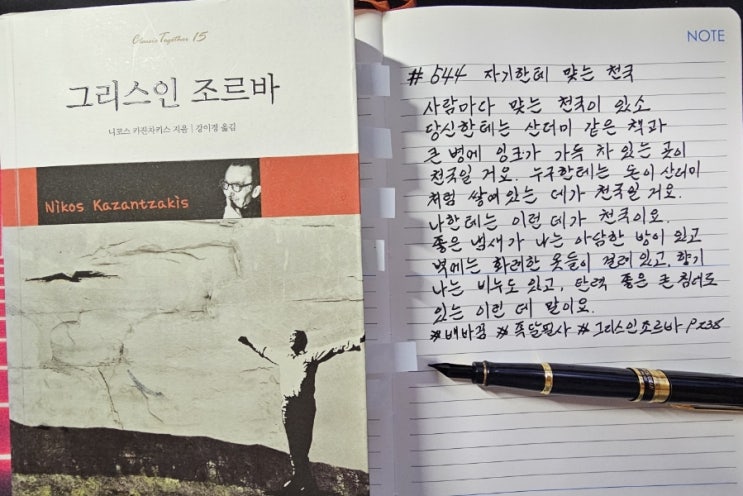 Classic Together 15
그리스인 조르바
니코스 카잔차키스 지음 | 강이경 옮김
Nikos Kazantzakis
NOTE
#544 자기한테 맞는 천국
사람마다 맞는 천국이 있소
당신한테는 산더미 같은 책과
큰 병에 잉크가 가득 차 있는 곳이
천국일 거요. 누구한테는 돈이 산더미
처럼 쌓여 있는 데가 천국일 거요.
나한테는 이런 데가 천국이요.
좋은 냄새가 나는 아담한 방이 있고
벽에는 화려한 옷들이 걸려 있고, 향기
나는 비누도 있고, 탄력 좋은 큰 침대도
있는 이런 데 말이요.
#배바꿈 #독달필사 #그리스인조르바